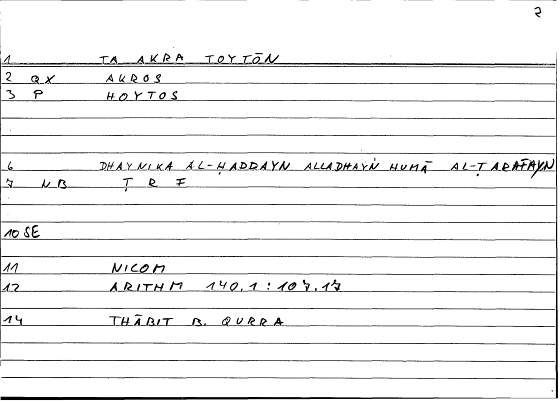 2
1 TA AKRA TOYTŌN
2 QX AKROS
3 P HOYTOS
6 DHAYNIKA AL-ḤADDAYN ALLADHAYN HUMĀ AL-ṬARAFAYN
7 NB Ṭ R F
10 SE
11 NICOM
12 ARITHM 140.1 : 107.17
14 THĀBIT B. QURRA